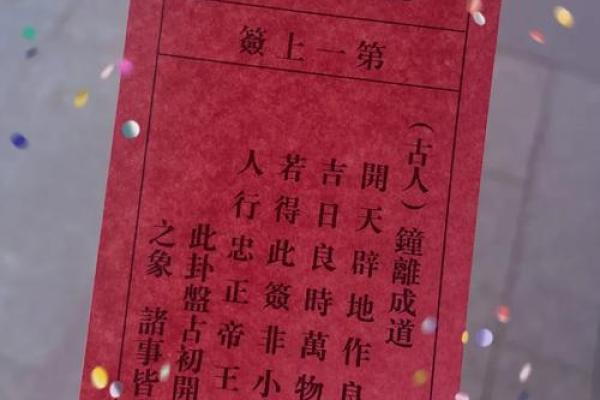 第一上簽
(古人)鐘離成道
開天辟地作良
吉日良時萬物
若得此簽非小
人行忠正帝王
此卦盤古初開
之象 諸事皆